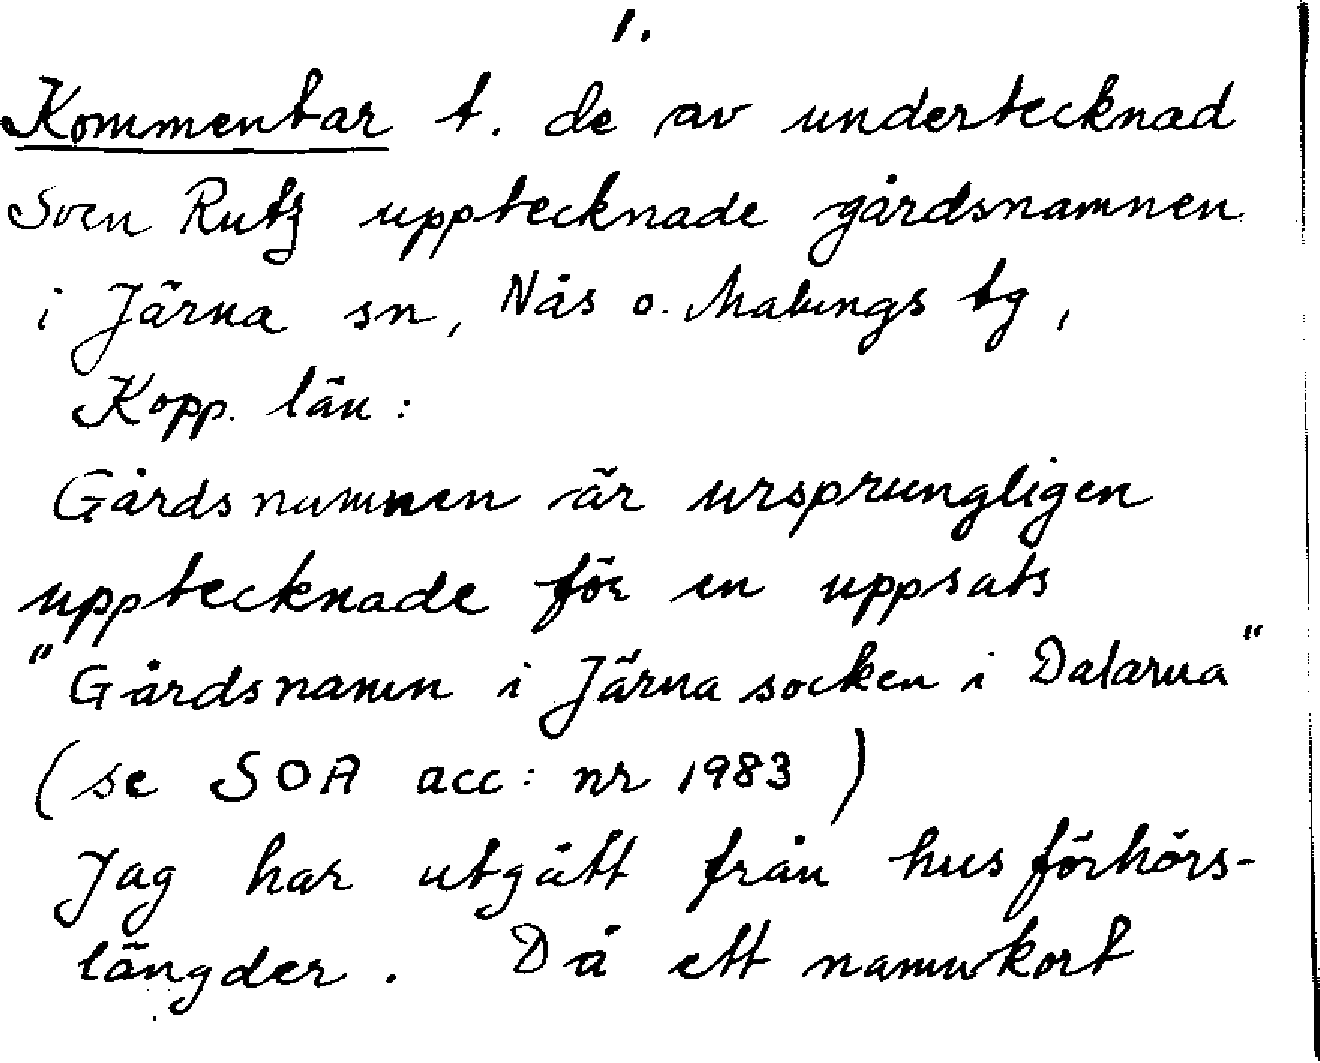 1.
Kommentar t. de av undertecknad
Sven Rutz upptecknade gårdsnamnen
i Järna sn, Nås o. Malungs tg,
Kopp. län:
Gårdsnamnen är ursprungligen
upptecknade för en uppsats
"Gårdsnamn i Järna socken i Dalarna"
(se SOA acc: nr 1983)
Jag har utgått från husförhörs-
längder. Då ett namnkort